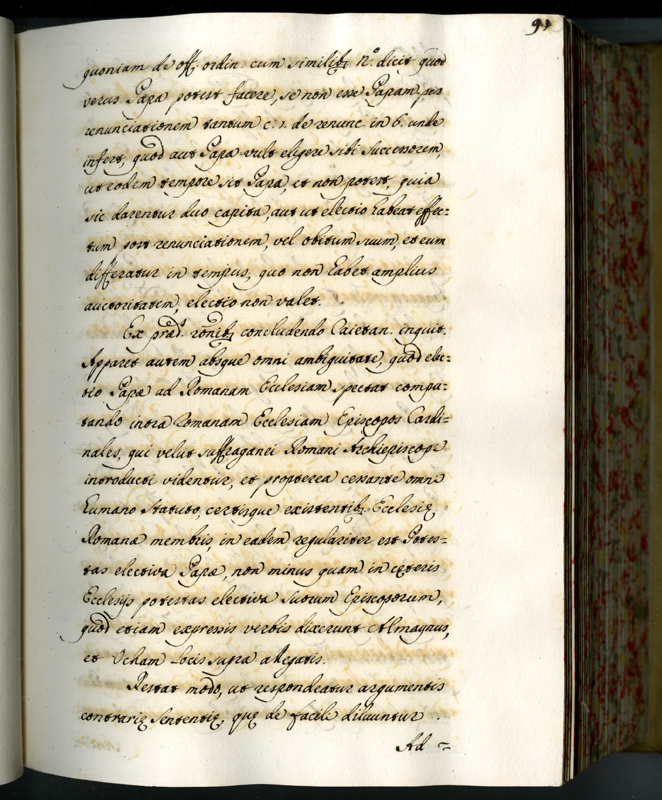 91
quoniam de off. ordin. cum similib; n.º dicit quod
verus Papa potest facere, se non esse Papam per
renunciationem tantum c. 1. de renunc. in 6. unde
infert, quod aut Papa vult eligere sibi Successorem,
ut eodem tempore sit Papa, et non potest, quia
sic darentur duo capita, aut ut electio habeat effec-
tum post renunciationem, vel obitum suum, et cum
differatur in tempus, quo non habet amplius
auctoritatem, electio non valet.
Ex præd. rõnib; concludendo Caietan. inquit.
Apparet autem absque omni ambiguitate, quod elec-
tio Papæ ad Romanam Ecclesiam spectat compu-
tando intra Romanam Ecclesiam Episcopos Cardi-
nales, qui velut suffraganei Romani Archiepiscopi
introducti videntur, et propterea cessante omni
humano statuto, certisque existentib; Ecclesię
Romanæ membris, in eadem regulariter est Potes-
tas electiva Papæ, non minus quam in cęteris
Ecclesijs potestas electiva suorum Episcoporum,
quod etiam expressis verbis dixerunt Almaynus,
et Ocham locis supra allegatis.
Restat modo, ut respondeatur argumentis
contrarię sententię, quę de facili diluuntur.
Ad